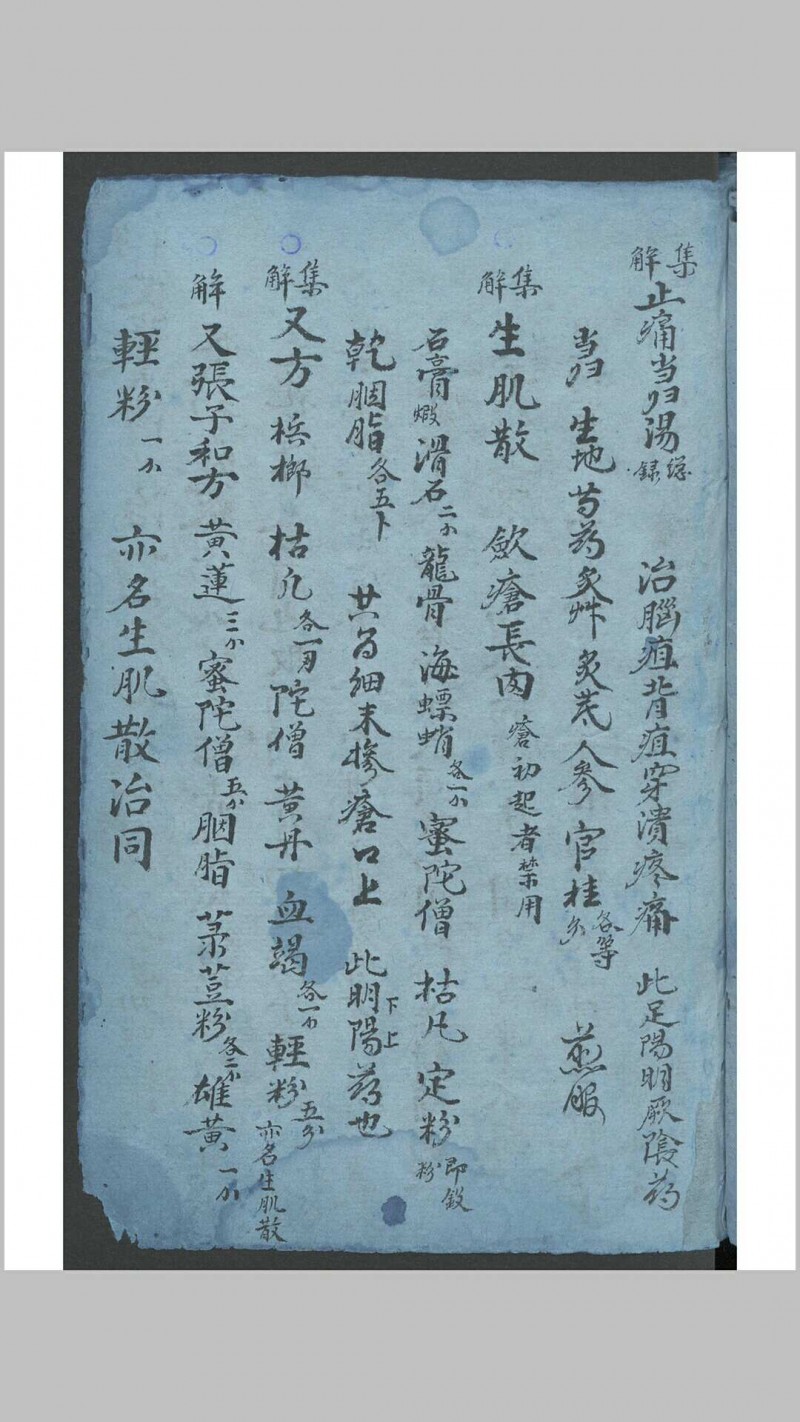 集解 止痛当归湯 総録 治腦疽背疽穿潰疼痛 此足陽明厥陰药
当归 生地 芍药 炙艸 炙芪 人參 官桂 各等分 煎服
集解 生肌散 斂瘡長肉 瘡初起者禁用
石膏 煅 滑石 二小 龍骨 海螵蛸 各一小 蜜陀僧 枯凡 定粉 即鈘粉
乾胭脂 各五卜 共為細末摻瘡口上 此明陽药也 下上
集解 又方 梹榔 枯凡 各一刄 陀僧 黃丹 血竭 各一小 輕粉 五分 亦名生肌散
解 又張子和方 黃蓮 三小 蜜陀僧 五小 胭脂 菉荳粉 各二小 雄黃 一小
輕粉 一小 亦名生肌散治同